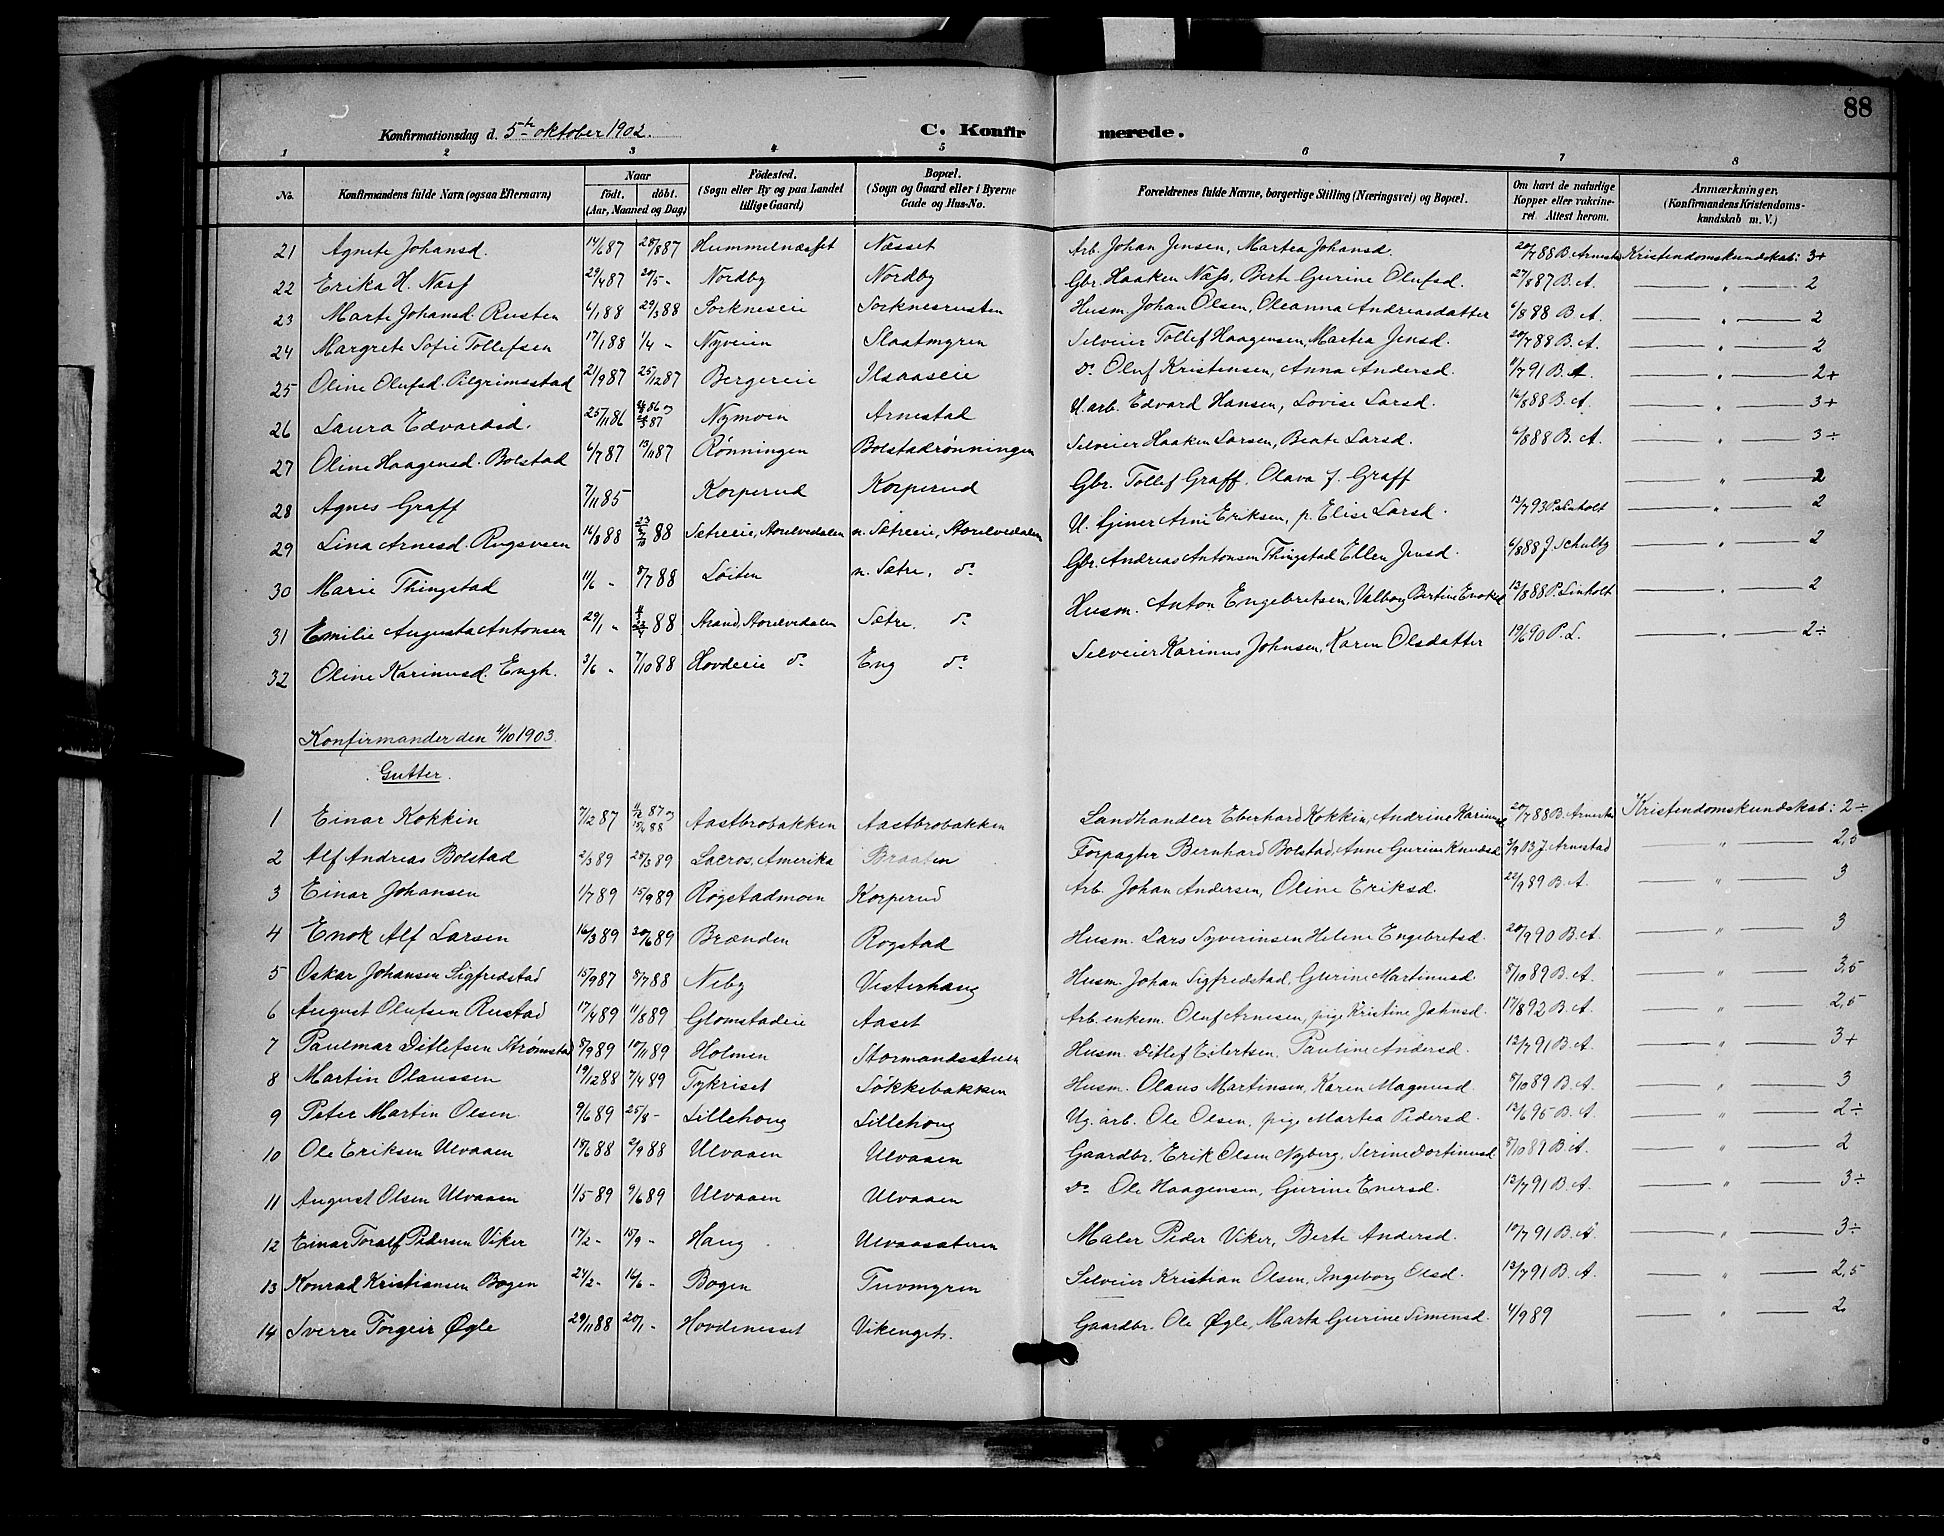 88
Konfirmationsdag d. 5te oktober 1902. C. Konfirmerede.
1 2 3 4 5 6 7 8
No. Konfirmandens fulde Navn (ogsaa Efternavn) Naar født, døbt. (Aar, Maaned og Dag) Fødested. (Sogn eller By og paa Landet tillige Gaard) Bopæl. (Sogn og Gaard eller i Byerne Gade og Hus-No. Forældrenes fulde Navne, borgerlige Stilling (Næringsvei) og Bopæl. Om havt de naturlige Kopper eller vakcineret. Attest herom. Anmærkninger, (Konfirmandens Kristendomskundskab m. V.)
21 Agnete Johansd. 14/6 87 28/8 87 Hummelnæsset Næsset Arb. Johan Jensen, Martea Johansd. 20/7 88 B. Arnesta Kristendomskundskab: 3+
22 Erika H. Næss 29/4 87 20/5 - Nordby Nordby Gbr. Haaken Næss, Berte Gurine Olufsd. 27/8 87 B. A. — " — 2
23 Marte Johansd. Rusten 6/1 88 29/3 88 Sorkneseie Sorknesrusten Husm. Johan Olsen, Oleanna Andreasdatter 6/8 88 B. A. — " — 2
24 Margrete Sofie Tollefsen 17/1 88 1/4 - Nyveien Slaatmyren Selveier Tollef Haagensen, Martea Jensd. 20/7 88 B. A. — " — 2
25 Oline Olufsd. Pilgrimsstad 21/9 87 25/12 87 Bergereie Ilsaaseie do Oluf Kristensen, Anna Andersd. 11/7 91 B. A. — " — 2+
26 Laura Edvardsd. 25/11 86 Nymoen Arnestad U. arb. Edvard Hansen, Lovise Larsd. 16/8 88 B. A. — " — 3+
27 Oline Haagensd. Bolstad 6/7 87 13/11 87 Rønningen Bolstadrønningen Selveier Haaken Larsen, Beate Larsd. 6/8 88 B. A. — " — 3÷
28 Agnes Graff 7/11 85 Korperud Korperud Gbr. Tollef Graff, Olava f. Graff — " — 2
29 Lina Arnesd. Rugsveen 16/8 88 88 Sætreeie, Storelvedalen n. Sætreeie, Storelvedalen U. tjener Arne Eriksen, p. Elise Larsd. 13/7 93 P. Linholt — " — 2
30 Marie Thingstad 11/6 - 8/7 88 Løiten n. Sætre, do Gbr. Andreas Antonsen Thingstad Ellen Jensd. 6/8 88 J. Schultz — " — 2
31 Emilie Augusta Antonsen 29/1 - 88 Strand, Storelvedalen Sætre, do Husm. Anton Engebretsen, Valborg Bertine Enoksd 12/8 88 P. Linholt — " — 2
32 Oline Karinusd. Engh. 3/6 - 7/10 88 Hovdeeie do Eng do Selveier Karinus Johnsen, Karen Olsdatter 19/6 90 P. L. — " — 2÷
Konfirmander den 4/10 1903.
Gutter.
1 Einar Kokkin 7/12 87 Aastbrobakken Aastbrobakken Landhandler Eberhard Kokkin, Andrine Karinusd 20/7 88 B. Arnestad Kristendomskundskab: 2÷
2 Alf Andreas Bolstad 2/3 89 28/3 89 Lacros, Amerika Braaten Forpagter Bernhard Bolstad, Anne Gurine Knudsd 3/9 03 J. Arnestad — " — 2,5
3 Einar Johansen 1/7 89 15/9 89 Rogstadmoen Korperud Arb. Johan Andersen, Oline Eriksd. 22/9 89 B. A. — " — 3
4 Enok Alf Larsen 16/3 89 30/6 89 Brænden Rogstad Husm. Lars Syverinsen Helene Engebretsd. 20/9 90 B. A. — " — 3
5 Oskar Johansen Sigfredstad 15/9 87 8/7 88 Neby Vesterhaug Husm. Johan Sigfredstad, Gurine Martinusd 8/10 89 B. A. — " — 3,5
6 August Olufsen Rustad 17/4 89 11/8 89 Glomstadeie Aaset Arb. enkem. Oluf Arnesen, pige Kristine Johnsd. 17/8 92 B. A. — " — 2,5
7 Paulmar Ditlefsen Strømstad 8/9 89 10/11 89 Holmen Stormandsstuen Husm. Ditlef Eilertsen, Pauline Andersd. 12/7 91 B. A. — " — 3+
8 Martin Olaussen 19/12 88 7/4 89 Tykriset Søkkebakken Husm. Olaus Martinsen, Karen Magnusd. 8/10 89 B. A. — " — 3
9 Peter Martin Olsen 9/6 89 25/8 - Lillehoug Lillehoug Ug. arb. Ole Olsen, pige Martea Pedersd. 12/6 95 B. A. — " — 2÷
10 Ole Eriksen Ulvaaen 18/6 88 2/9 88 Ulvaaen Ulvaaen Gaardbr. Erik Olsen Nyberg, Serine Dortinusd 8/10 89 B. A. — " — 2
11 August Olsen Ulvaaen 1/5 89 9/6 89 Ulvaaen Ulvaaen do Ole Haagensen, Gurine Enersd. 12/7 91 B. A. — " — 3÷
12 Einar Toralf Pedersen Viker 17/2 - 15/9 - Haug Ulvaasæteren Maler Peder Viker, Berte Andersd. 10/7 91 B. A. — " — 3÷
13 Konrad Kristiansen Bogen 24/2 - 16/6 - Bogen Tuvmyren Selveier Kristian Olsen, Ingeborg Olsd. 12/7 91 B. A. — " — 2,5
14 Sverre Torgeir Øgle 29/11 88 20/1 - Hovdenesset Vikenget. Gaardbr. Ole Øgle, Marta Gurine Simensd. 4/9 89 — " — 2